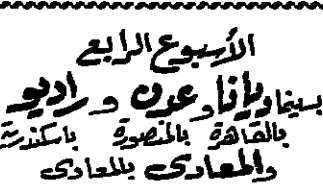 الأسبوع الرابع
بسينما ديانا وعدن وراديو
بالقاهرة بالمنصورة باسكندرية
والمعادى بالمعادى